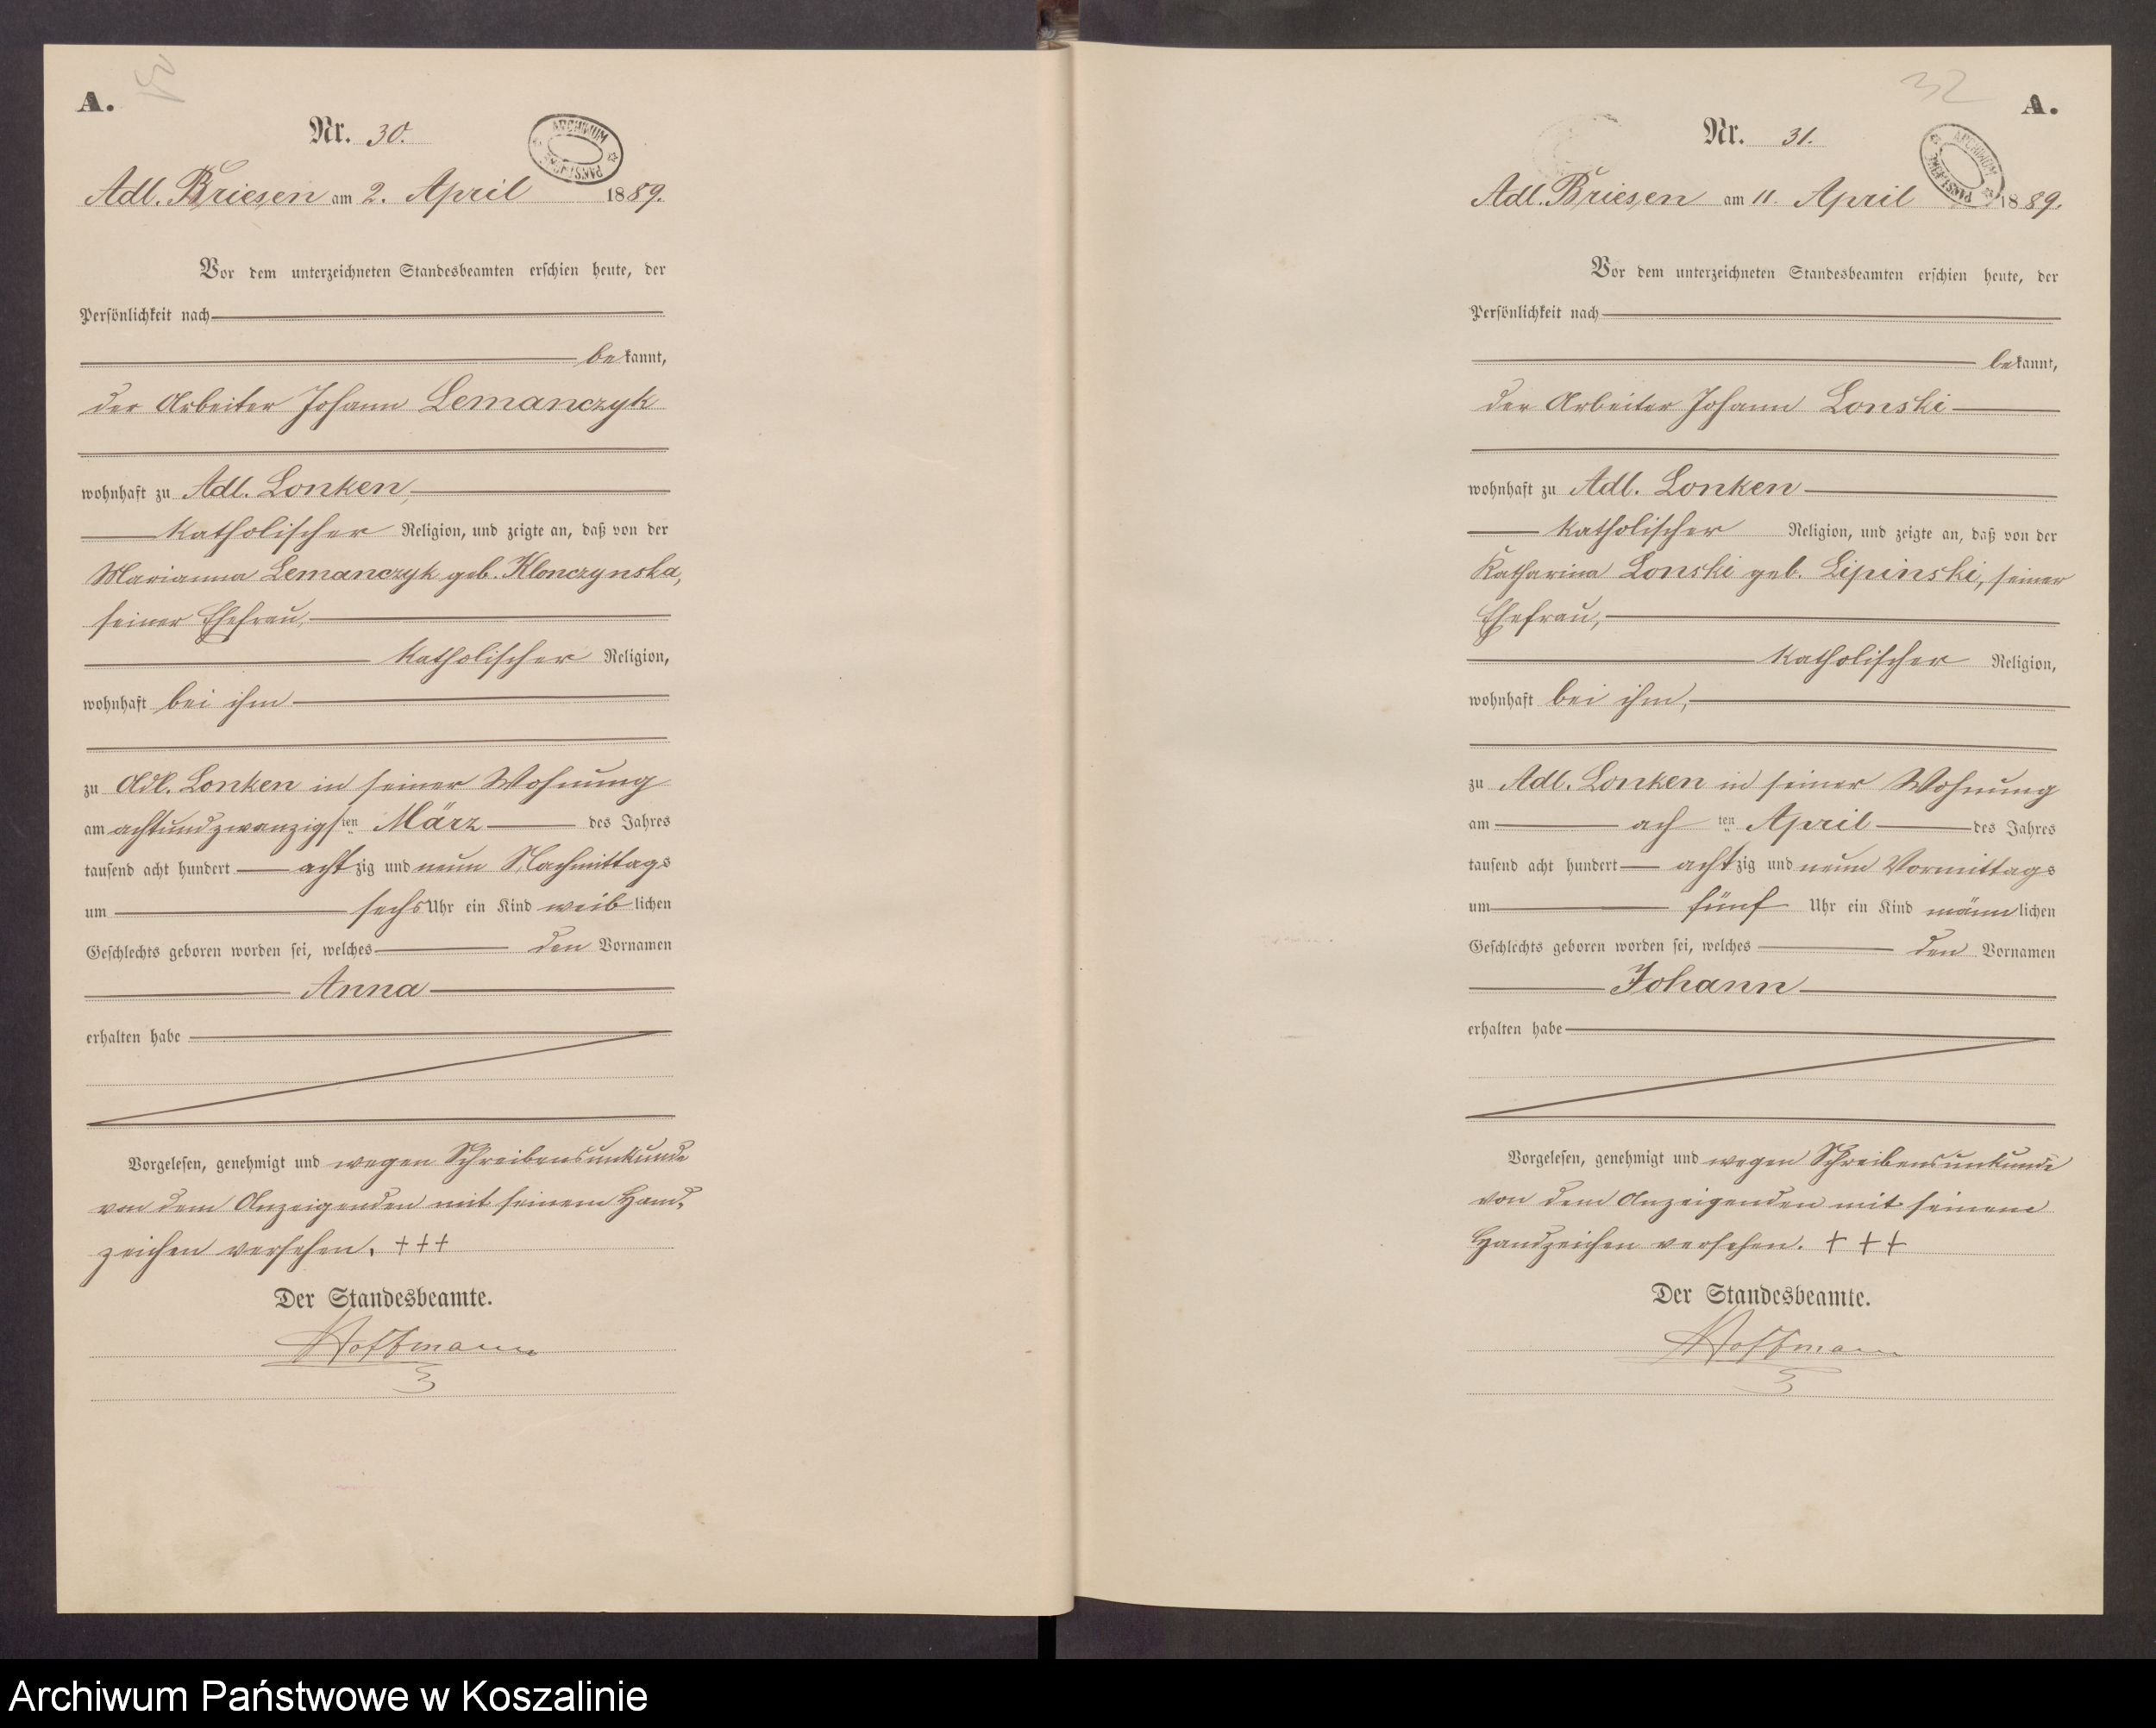 A.
Nr. 30.
ARCHIWUM PAŃSTWOWE
Adl. Briesen am 2. April 1889.
Vor dem unterzeichneten Standesbeamten erschien heute, der
Persönlichkeit nach
bekannt,
der Arbeiter Johann Lemanczyk
wohnhaft zu Adl. Lonken,
katholischer Religion, und zeigte an, daß von der
Marianna Lemanczyk geb. Klonczynska,
seiner Ehefrau,
katholischer Religion,
wohnhaft bei ihm
zu Adl. Lonken in seiner Wohnung
am achtundzwanzigsten März des Jahres
tausend acht hundert achtzig und neun Nachmittags
um sechs Uhr ein Kind weiblichen
Geschlechts geboren worden sei, welches den Vornamen
Anna
erhalten habe
Vorgelesen, genehmigt und wegen Schreibensunkunde
von dem Anzeigenden mit seinem Hand-
zeichen versehen. +++
Der Standesbeamte.
Hoffmann
32
A.
Nr. 31.
ARCHIWUM PAŃSTWOWE
Adl. Briesen am 11. April 1889.
Vor dem unterzeichneten Standesbeamten erschien heute, der
Persönlichkeit nach
bekannt,
der Arbeiter Johann Lonski
wohnhaft zu Adl. Lonken
katholischer Religion, und zeigte an, daß von der
Katharina Lonski geb. Lipinski, seiner
Ehefrau,
katholischer Religion,
wohnhaft bei ihm,
zu Adl. Lonken in seiner Wohnung
am ach ten April des Jahres
tausend acht hundert achtzig und neun Vormittags
um fünf Uhr ein Kind männlichen
Geschlechts geboren worden sei, welches den Vornamen
Johann
erhalten habe
Vorgelesen, genehmigt und wegen Schreibensunkunde
von dem Anzeigenden mit seinem
Handzeichen versehen. +++
Der Standesbeamte.
Hoffmann
Archiwum Państwowe w Koszalinie